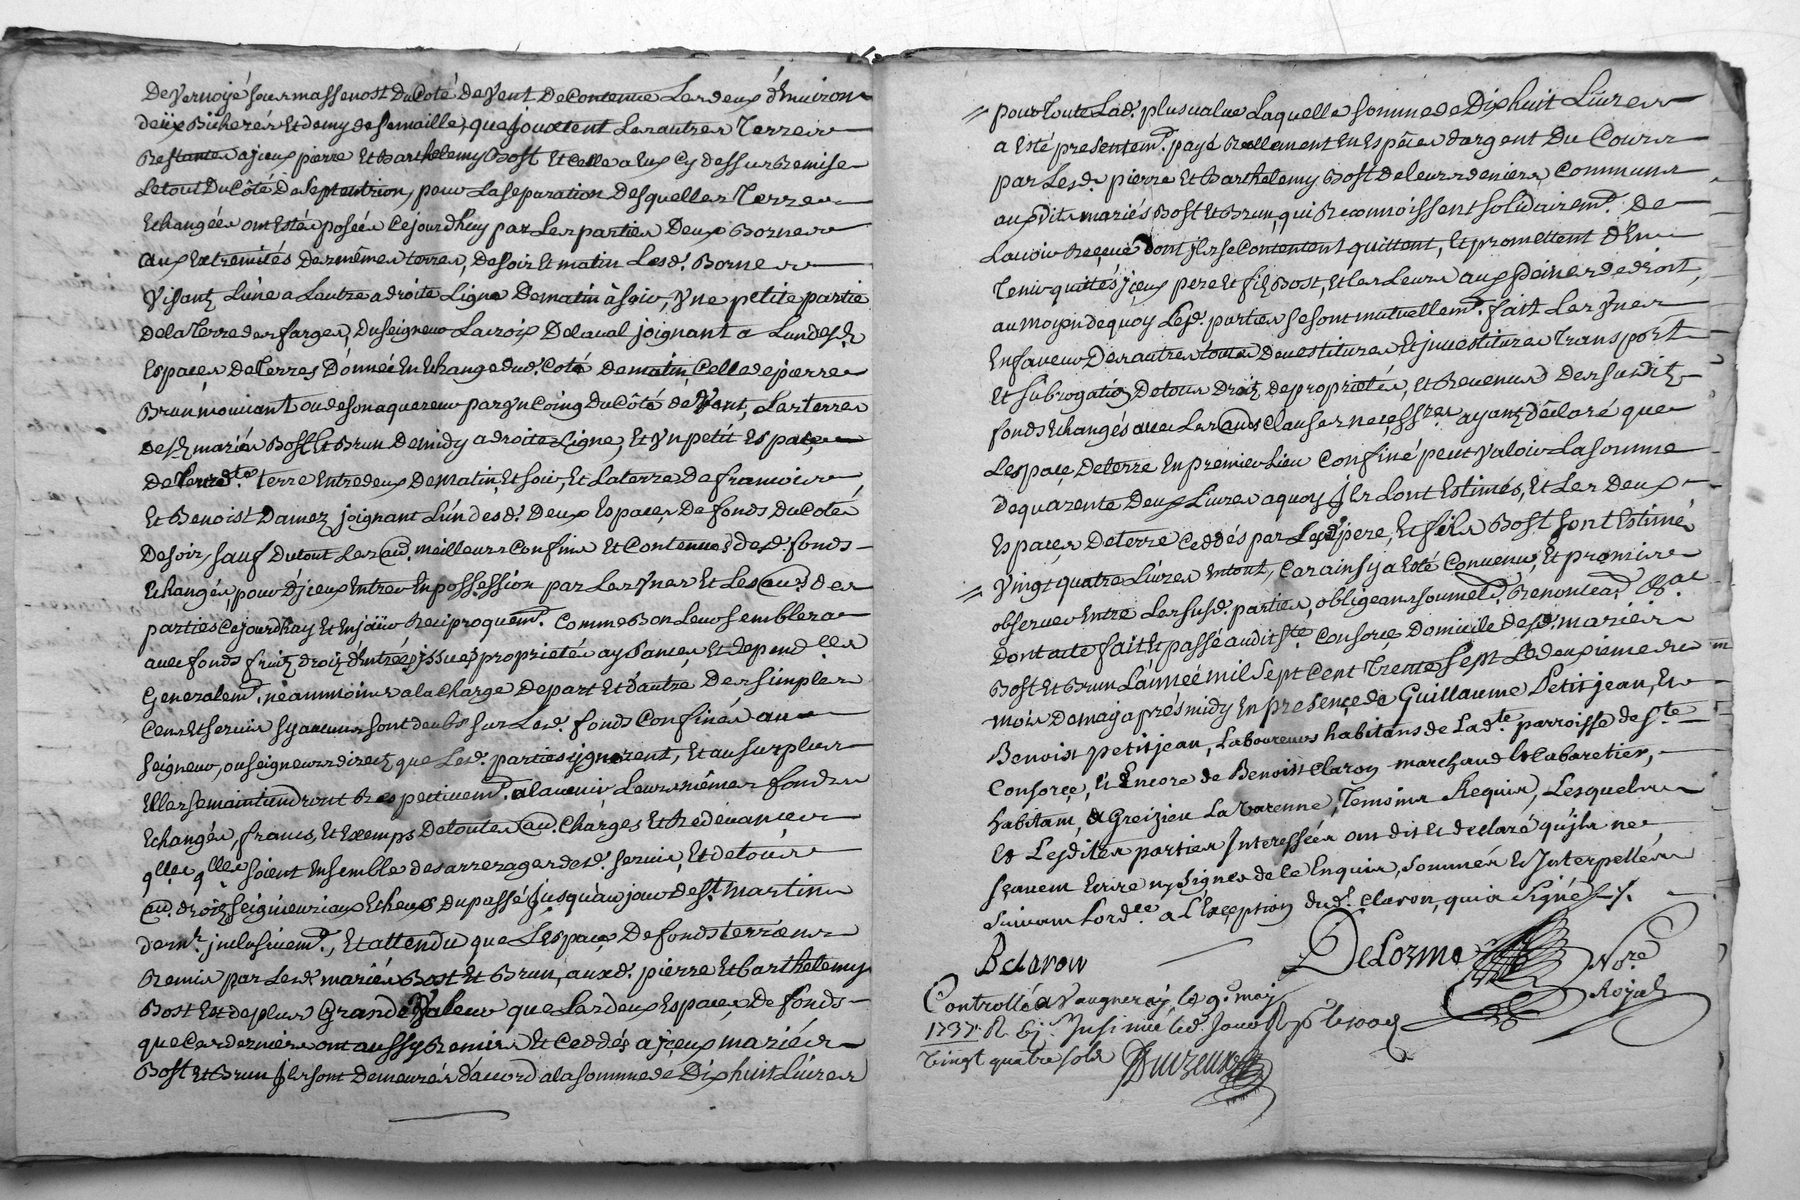 De Vernoyé sous massenost Du Coté de Vent De Contenue Les deux d'Environ
deux Bicherés Et demy de Semaille, que Jouxtent Les autres Terres
Restantes a jceux pierre Et Barthelemy Bost Et Celle a Eux Cy dessus Remise
Le tout Du Côté De Septentrion, pour La Separation Desquelles Terres
Echangées ont Esté posées Cejourdhuy par Les parties Deux Bornes
aux Extremités des mêmes terres, de soir Et matin Lesd. Bornes
Visant Lune a Lautre a droite Ligne De matin à soir, Vne petite partie
De la Terre des farges, du seigneur Lacroix De laval joignant a Lun desd.
Espaces De Terres Donnée En Echange dud. Coté de matin, Celle de pierre
Brun mouvant ou de son aquereur par Vn Coing Du Côté de Vent, Les terres
desd. mariés Bost Et Brun De midy a droite Ligne, Et Vn petit Espace
De terre Entre deux De matin Et soir, Et La terre De francois
Et Benoist Damez joignant L'un desd. Deux Espaces De fonds Du Coté
De soir, sauf Du tout Les au. meilleurs Confins Et Contenues desd. fonds
Echangés, pour d'jceux Entrer En possession par Les Vnes Et Les au. des
parties Cejourdhuy Et En jouir Reciproquem. Comme Bon Leur semblera
avec fonds fruitz droitz d'Entrées jssues proprietés aysances Et depend.ces
Generalem. neammoins a la Charge De part Et d'autre Des simples
Cens Et servis sy aucuns sont deubs sur Lesd. fonds Confinés aux
Seigneur, ou seigneurs directz que Lesd. parties ignorent, Et au surplus
Elles se maintiendront Respectivem. a Lavenir Leurs mêmes fonds
Echangés, francs, Et Exemps De toutes au. Charges Et Redevances
q.lles q.lles soient Ensemble des arrerages desd. servis, Et de tous
au. droitz seigneuriaux Echeus du passé Jusqu'au jour de St. martin
der. jnclusivem., Et attendu que L'Espace De fonds terrains
Remis par Lesd. mariés Bost Et Brun, auxd. pierre Et Barthelemy
Bost Est de plus Grande Valeur que Les deux Espaces De fonds
que Ces derniers ont aussy Remis Et Ceddés a jceux mariés
Bost Et Brun Jls sont Demeurés d'accord a la somme de Dixhuit Livres
pour Toute Lad. plus value Laquelle somme de Dixhuit Livres
a Esté presentem. payé Reellement En Espèces d'argent Du Cours
par Lesd. pierre Et Barthelemy Bost de leurs deniers Communs
aux Dits mariés Bost Et Brun, qui Reconnoissent solidairem. De
Lavoir Reçeue dont jls se Contentent quittent, Et promettent d'En
Tenir quittés jçeux pere Et fils Bost, Et les Leurs aux peines de droit,
au moyen de quoy Lesd. parties se sont mutuellem. fait Les Vnes
En faveur Des autres toutes devestitures Et jnvestitures Transport
Et subrogation De tous Droitz De proprietés, Et Revenus Des susditz
fonds Echangés avec Les au. Clauses necess.res ayant Déclaré que
Lespace De terre En premier Lieu Confiné peut Valoir La somme
De quarente Deux Livres a quoy Jls L'ont Estimés, Et Les Deux
Espaces De terre Ceddés par Lesd. pere, Et fils Bost sont Estimé
Vingt quatre Livres En tout, Car ainsy a Esté Convenu, Et promis
observer Entre Les susd. parties, obligeans soumet. Renoncea. &.ac
Dont acte fait Et passé audit S.te Consorçe Domicile desd. mariés
Bost Et Brun L'année mil Sept Cent Trente Sept Le deuxieme du
mois De may aprés midy En presençe de Guillaume Petitjean, Et
Benoist petitjean, Laboureurs habitans de Lad.te parroisse de S.te
Consorçe, Et Encore de Benoist Claron marchand Et Cabaretier,
habitant, a Greizieu La Varenne, Temoins Requis, Lesquels
Et Lesdites parties Interessées ont dit Et declaré qu'jls ne
sçavent Ecrire ny signer de Ce Enquis, sommés Et Interpellés
suivant Lord.ce a L'Exception dud. Claron, qui a signé
B Claron
Delorme
No.re
Royal
Controllé a Vaugneray, le 9. may
1737. R. Insinué led. Jour R
vingt quatre sols